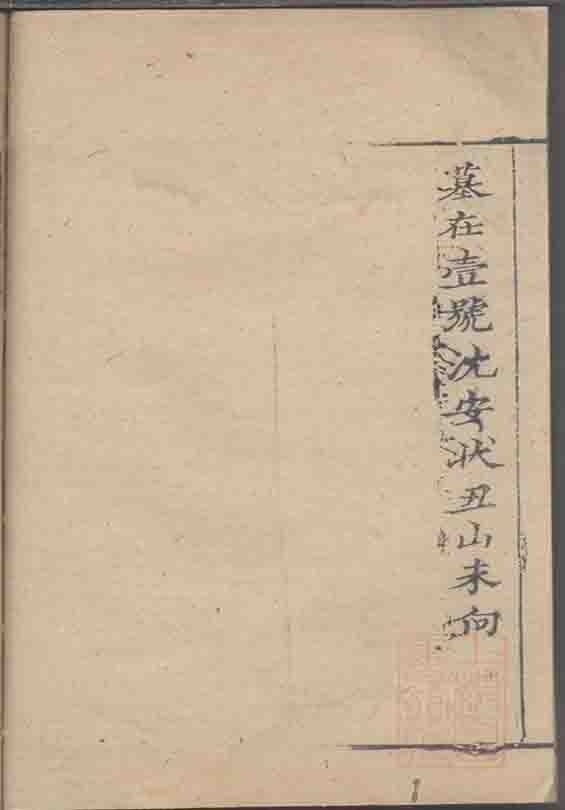 墓在壹號沈安狀丑山未向